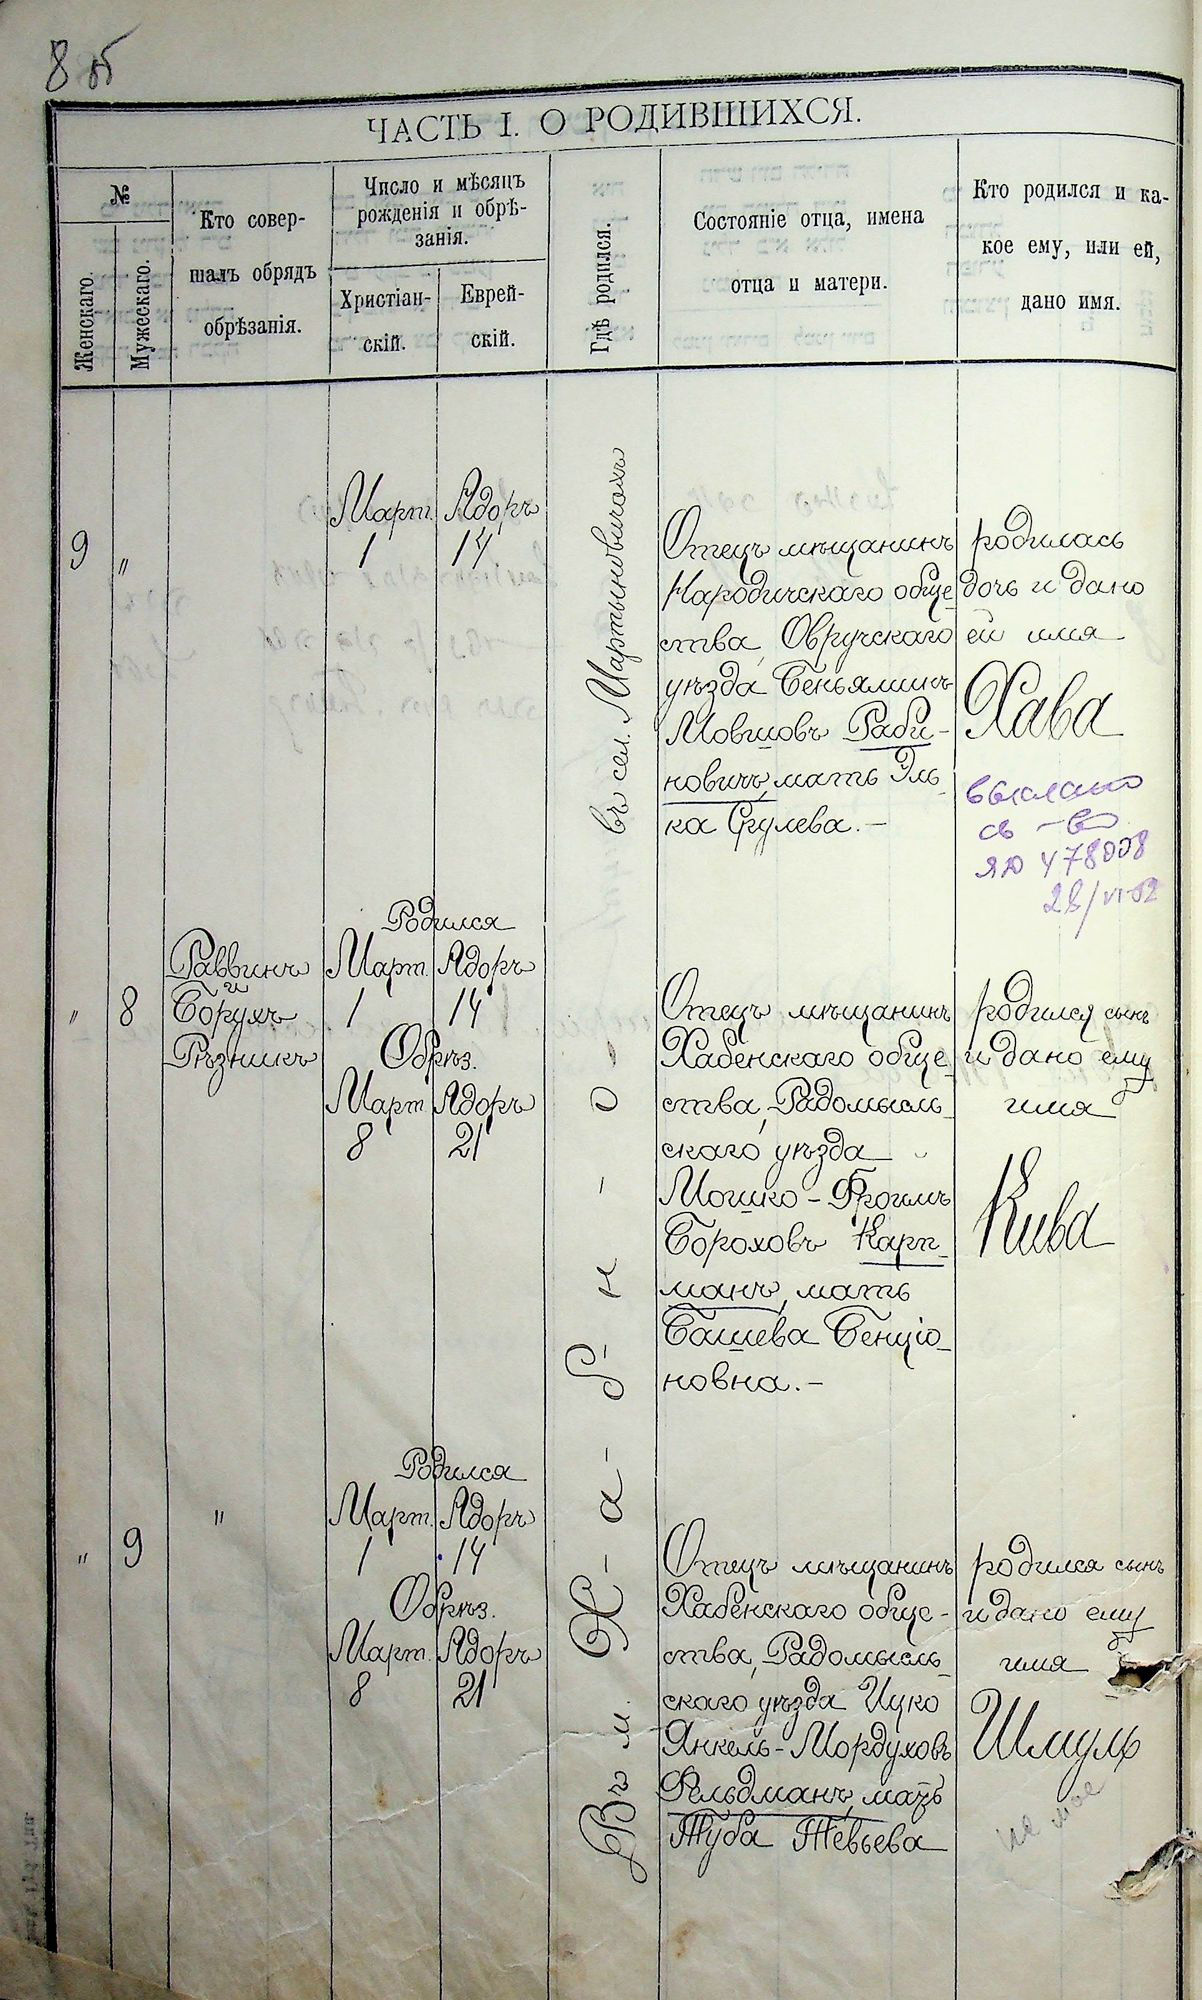 8 об
ЧАСТЬ I. О РОДИВШИХСЯ.
№
Женскаго.
Мужескаго.
Кто совер-
шалъ обрядъ
обрѣзанія.
Число и мѣсяцъ
рожденія и обрѣ-
занія.
Христіан-
скій.
Еврей-
скій.
Гдѣ родился.
Состояніе отца, имена
отца и матери.
Кто родился и ка-
кое ему, или ей,
дано имя.
9 "
Март. Адоръ
1 14
въ сел. Мартыновичахъ
Отецъ мѣщанинъ
Народичскаго обще
ства, Овручскаго
уѣзда Беньяминъ
Мовшовъ Раби-
новичъ, мать Эль
ка Срулева.-
родилась
дочь и дано
ей имя
Хава
выслано
св-во
ЯЮ 478008
28/VI-52
" 8
Раввинъ
Борухъ
Рѣзникъ
Родился
Март. Адоръ
1 14
Обрѣз.
Март. Адоръ
8 21
Въ м. Х-а-б-н-о-
Отецъ мѣщанинъ
Хабенскаго обще-
ства, Радомысль-
скаго уѣзда
Мошко-Фроимъ
Бороховъ Карп-
манъ, мать
Башева Бенціо-
новна.-
родился сынъ
и дано ему
имя
Кива
" 9
"
Родился
Март. Адоръ
1 14
Обрѣз.
Март. Адоръ
8 21
Отецъ мѣщанинъ
Хабенскаго обще-
ства, Радомысль-
скаго уѣзда Ицко
Янкель-Мордуховъ
Фельдманъ, мать
Туба Тевьева
родился сынъ
и дано ему
имя
Шмуль